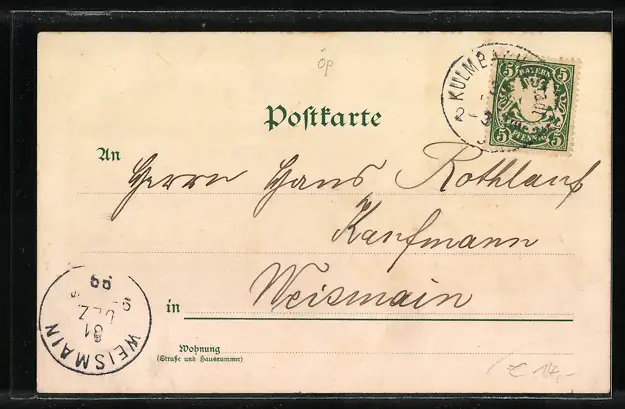 öp
KULMBACH
5 BAYERN 5
5 PFENNIG 5
Postkarte
An
Herrn Hans Rothlauf
Kaufmann
Weismain
in
Wohnung
(Straße und Hausnummer)
WEISMAIN
31
DEZ
99
€ 14,-